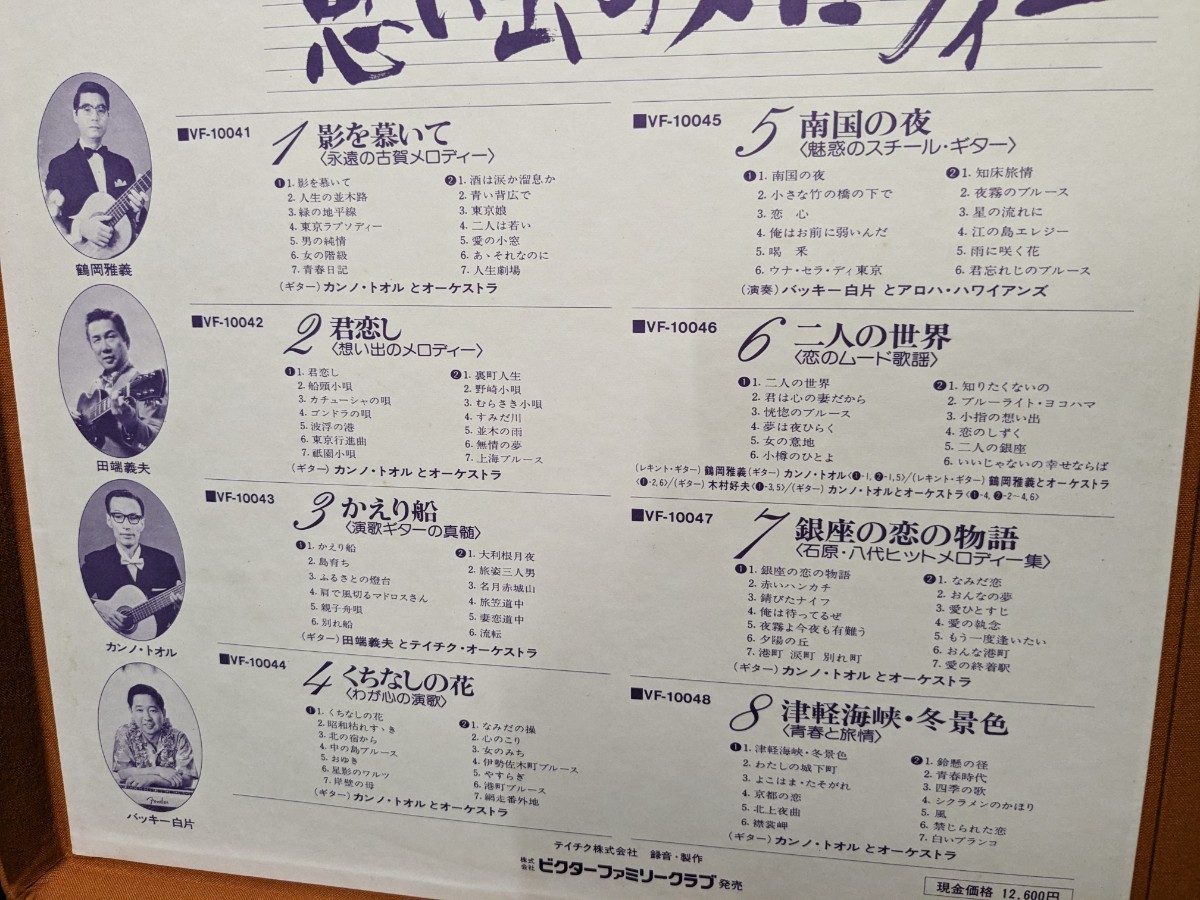 想い出のメロディー
鶴岡雅義
田端義夫
カンノ・トオル
バッキー白片
Fender
■VF-10041
1 影を慕いて
〈永遠の古賀メロディー〉
❶1. 影を慕いて
2. 人生の並木路
3. 緑の地平線
4. 東京ラプソディー
5. 男の純情
6. 女の階級
7. 青春日記
❷1. 酒は涙か溜息か
2. 青い背広で
3. 東京娘
4. 二人は若い
5. 愛の小窓
6. あゝそれなのに
7. 人生劇場
(ギター) カンノ・トオル とオーケストラ
■VF-10042
2 君恋し
〈想い出のメロディー〉
❶1. 君恋し
2. 船頭小唄
3. カチューシャの唄
4. ゴンドラの唄
5. 波浮の港
6. 東京行進曲
7. 祇園小唄
❷1. 裏町人生
2. 野崎小唄
3. むらさき小唄
4. すみだ川
5. 並木の雨
6. 無情の夢
7. 上海ブルース
(ギター) カンノ・トオル とオーケストラ
■VF-10043
3 かえり船
〈演歌ギターの真髄〉
❶1. かえり船
2. 島育ち
3. ふるさとの燈台
4. 肩で風切るマドロスさん
5. 親子舟唄
6. 別れ船
❷1. 大利根月夜
2. 旅姿三人男
3. 名月赤城山
4. 旅笠道中
5. 妻恋道中
6. 流転
(ギター) 田端義夫 とテイチク・オーケストラ
■VF-10044
4 くちなしの花
〈わが心の演歌〉
❶1. くちなしの花
2. 昭和枯れすゝき
3. 北の宿から
4. 中の島ブルース
5. おゆき
6. 星影のワルツ
7. 岸壁の母
❷1. なみだの操
2. 心のこり
3. 女のみち
4. 伊勢佐木町ブルース
5. やすらぎ
6. 港町ブルース
7. 網走番外地
(ギター) カンノ・トオル とオーケストラ
■VF-10045
5 南国の夜
〈魅惑のスチール・ギター〉
❶1. 南国の夜
2. 小さな竹の橋の下で
3. 恋 心
4. 俺はお前に弱いんだ
5. 喝 采
6. ウナ・セラ・ディ東京
❷1. 知床旅情
2. 夜霧のブルース
3. 星の流れに
4. 江の島エレジー
5. 雨に咲く花
6. 君忘れじのブルース
(演奏) バッキー白片 とアロハ・ハワイアンズ
■VF-10046
6 二人の世界
〈恋のムード歌謡〉
❶1. 二人の世界
2. 君は心の妻だから
3. 恍惚のブルース
4. 夢は夜ひらく
5. 女の意地
6. 小樽のひとよ
❷1. 知りたくないの
2. ブルーライト・ヨコハマ
3. 小指の想い出
4. 恋のしずく
5. 二人の銀座
6. いいじゃないの幸せならば
(レキント・ギター) 鶴岡雅義(ギター) カンノ・トオル〈❶-1, ❷-1, 5〉/(レキント・ギター) 鶴岡雅義とオーケストラ
〈❶-2, 6〉/(ギター) 木村好夫〈❶-3, 5〉/(ギター) カンノ・トオルとオーケストラ〈❶-4, ❷-2〜4, 6〉
■VF-10047
7 銀座の恋の物語
〈石原・八代ヒットメロディー集〉
❶1. 銀座の恋の物語
2. 赤いハンカチ
3. 錆びたナイフ
4. 俺は待ってるぜ
5. 夜霧よ今夜も有難う
6. 夕陽の丘
7. 港町 涙町 別れ町
❷1. なみだ恋
2. おんなの夢
3. 愛ひとすじ
4. 愛の執念
5. もう一度逢いたい
6. おんな港町
7. 愛の終着駅
(ギター) カンノ・トオル とオーケストラ
■VF-10048
8 津軽海峡・冬景色
〈青春と旅情〉
❶1. 津軽海峡・冬景色
2. わたしの城下町
3. よこはま・たそがれ
4. 京都の恋
5. 北上夜曲
6. 襟裳岬
❷1. 鈴懸の径
2. 青春時代
3. 四季の歌
4. シクラメンのかほり
5. 風
6. 禁じられた恋
7. 白いブランコ
(ギター) カンノ・トオル とオーケストラ
テイチク株式会社 録音・製作
株式会社 ビクターファミリークラブ 発売
現金価格 12,600円